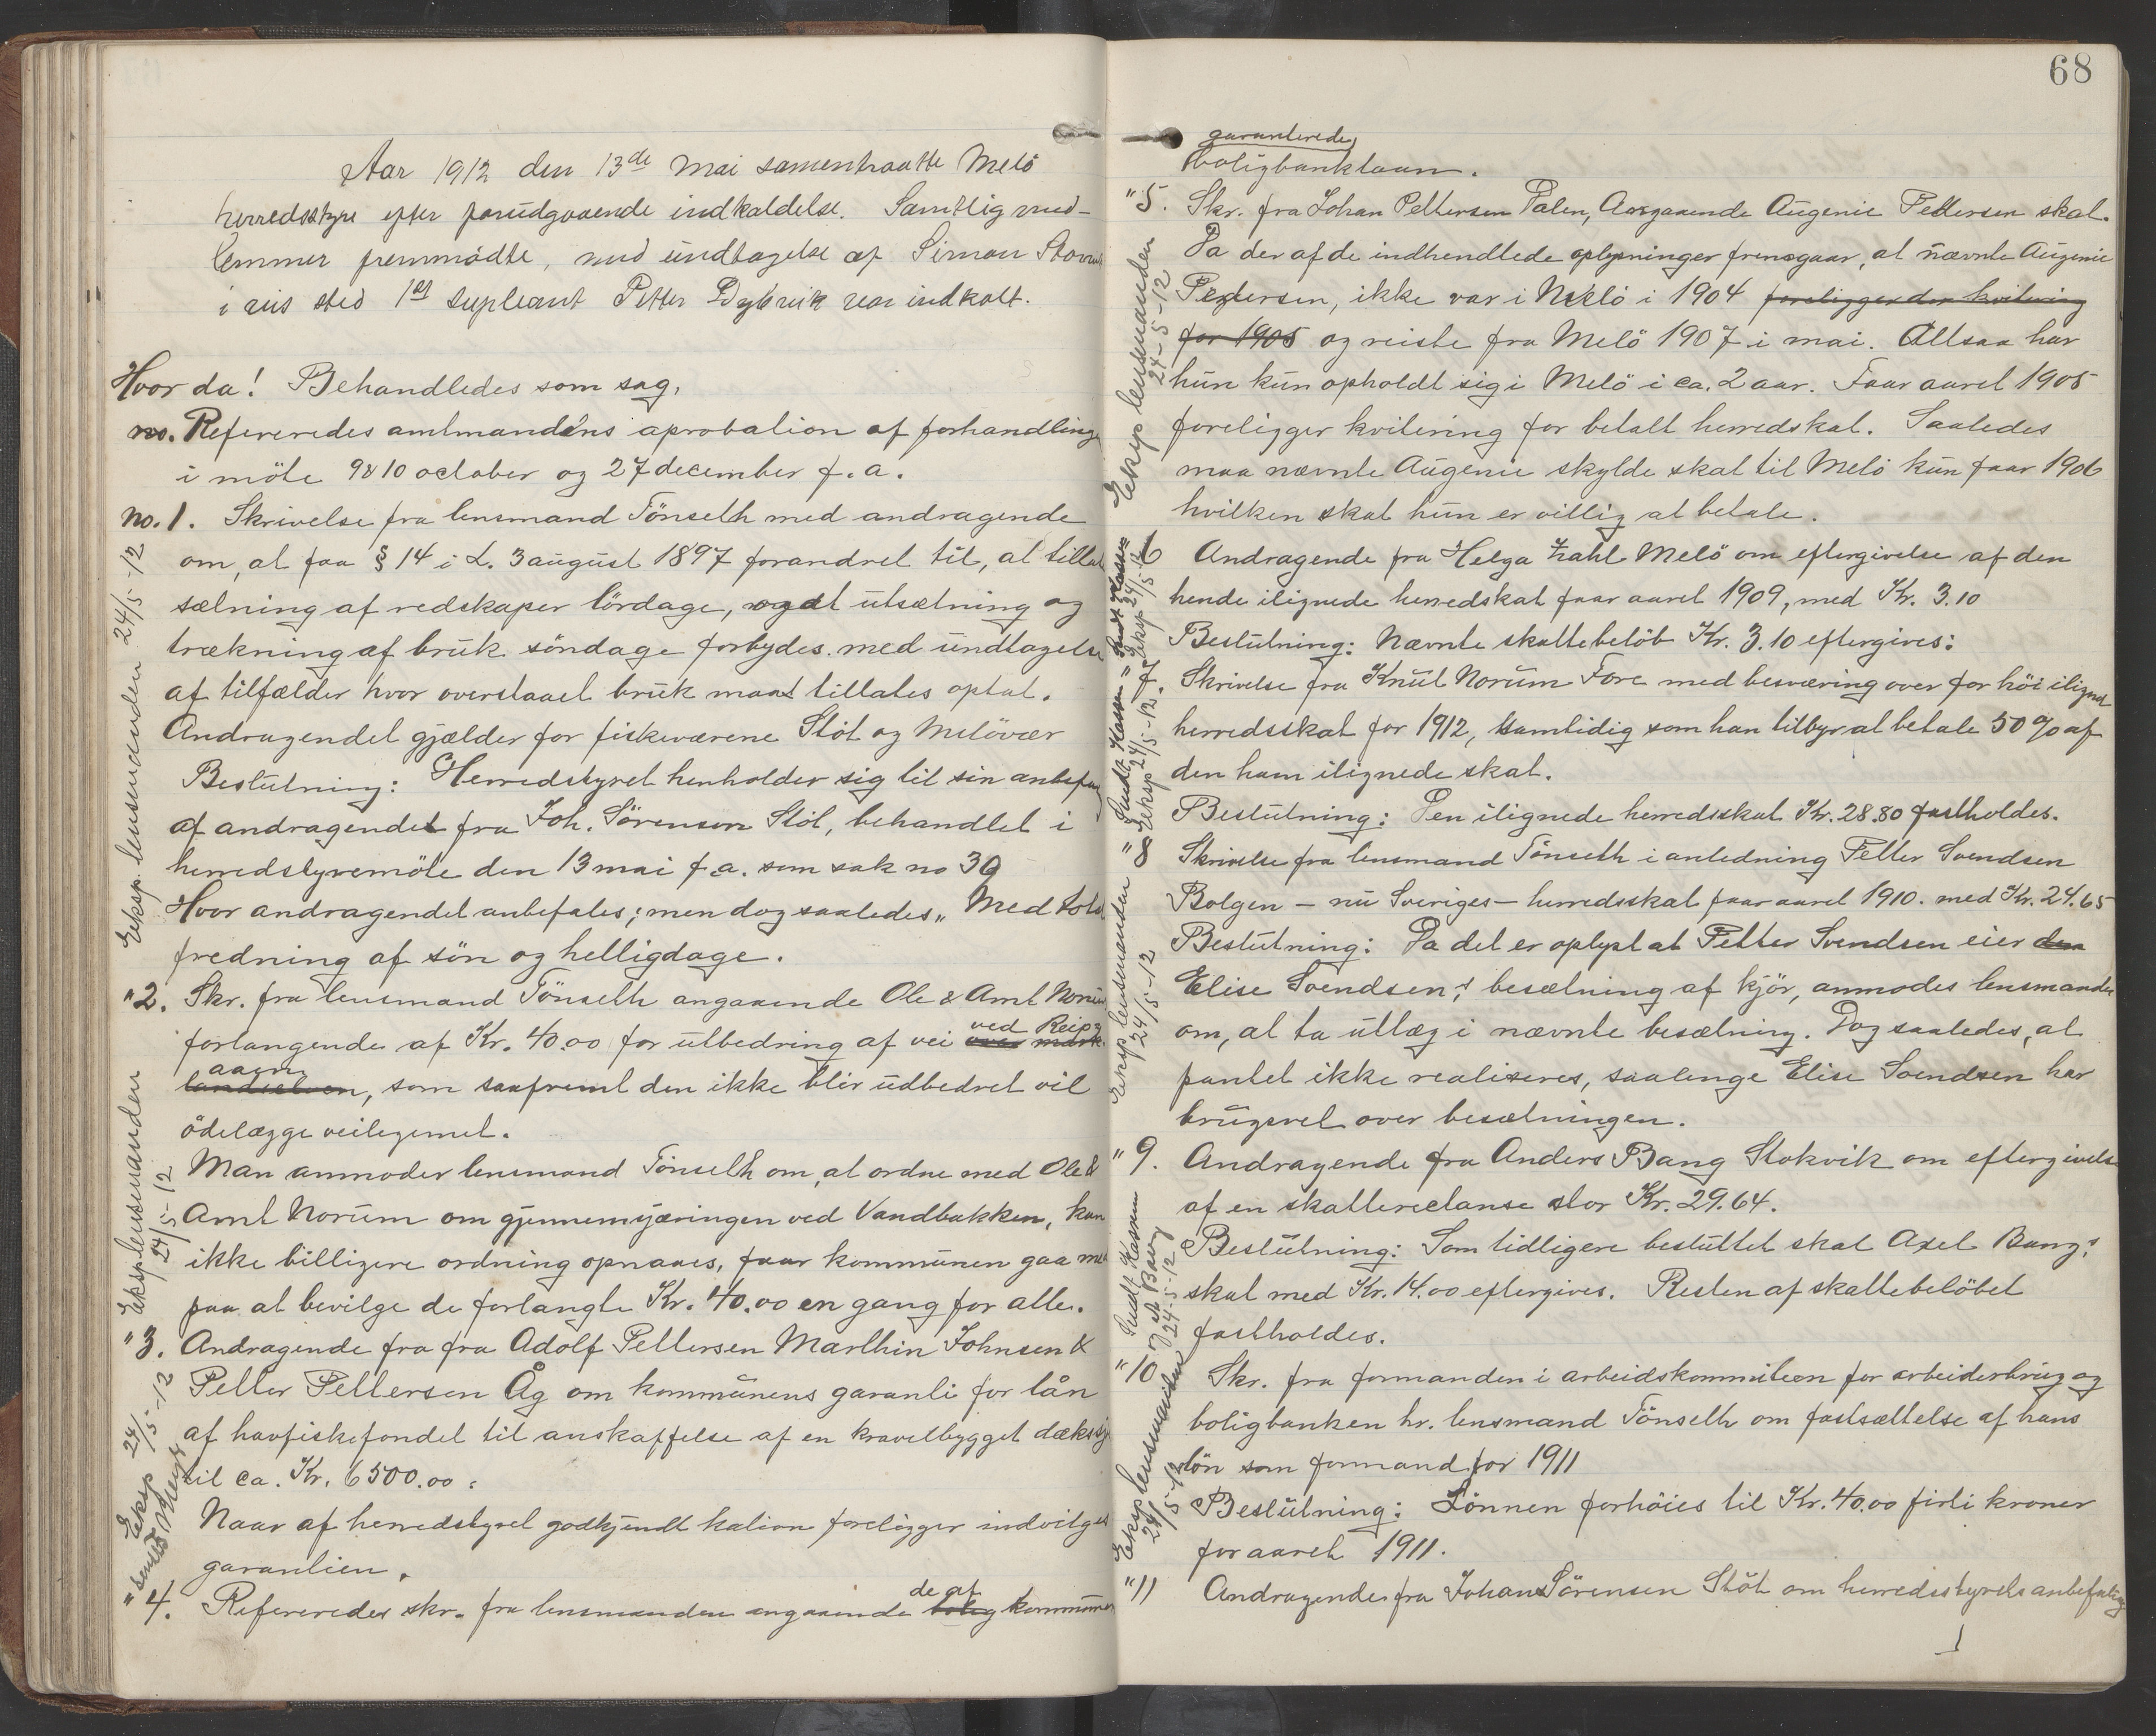 Aar 1912 den 13de mai samentraatte Melö
herredsstyre efter forudgaaende indkaldelse. Samtlig med-
lemmer fremmödte, med undtagelse af Simon
i vis sted 1ste supleant Petter Dybvik var indkalt.
Hvor da! Behandledes som sag,
no. Refereredes amtmandens aprobation af forhandlinge
i möte 9 & 10 october og 27 december f. a.
No. 1. Skrivelse fra lensmand Tönseth med andragende
om, at faa § 14 i L. 3 august 1897 forandret til, at tillat
sætning af redskaper lördage, og at utsætning og
trækning af bruk söndage forbydes med undtagelse
af tilfælder hvor overstaaet bruk maa tillates optat.
Andragendet gjælder for fiskeværene Stöt og Melövær
Beslutning: Herredstyret henholder sig til sin anbefa
af andragendet fra Joh. Sörensen Stöt, behandlet i
herredstyremöte den 13 mai f.a. som sak no 39
Hvor andragendet anbefales; men dog saaledes „ Med total
fredning af sön og helligdage.
Eksp. lensmanden 24/5-12
"2. Skr. fra lensmand Tönseth angaaende Ole & Arnt Norum
forlangende af Kr. 40.00 for utbedring af vei over mark ved Reipg
landselven aaern, som saafremt den ikke blir udbedret vil
ödelægge veilegemet.
Man anmoder lensmand Tönseth om, at ordne med Ole &
Arnt Norum om gjennemsjæringen ved Vandbakken, kan
ikke billigere ordning opnaaes, faar kommunen gaa med
paa at bevilge de forlangte Kr. 40.00 en gang for alle.
Eksp. lensmanden 24/5-12
"3. Andragende fra fra Adolf Pettersen Marthin Johnsen &
Petter Pettersen Åg om kommunens garanti for lån
af havfiskefondet til anskaffelse af en kravelbygget dæks
til ca. Kr. 6500.00.
Naar af herredstyret godkjendt kation foreligger indvilges
garantien.
Eksp 24/5-12
"4. Refereredes skr. fra lensmanden angaaende bolig de af kommunen
68
garanterede
boligbanklaan.
"5. Skr. fra Johan Pettersen Dalen, Angaaende Augenie Pettersen skat.
Da der af de indhendtede oplysninger fremgaar, at nævnte Augenie
Pettersen, ikke var i Melö i 1904 foreligger der kvitering
for 1905 og reiste fra Melö 1907 i mai. Altsaa har
hun kun opholdt sig i Melö i ca. 2 aar. Faar aaret 1905
foreligger kvitering for betalt herredskat. Saaledes
maa nævnte Augenie skylde skat til Melö kun faar 1906
hvilken skat hun er villig at betale.
Eksp lensmanden 24-5-12
"6 Andragende fra Helga Zahl Melö om eftergivelse af den
hende ilignede herredskat faar aaret 1909, med Kr. 3.10
Beslutning: Nævnte skattebelöb Kr. 3.10 eftergives:
"7. Skrivelse fra Knut Norum Fore med besværing over for höi ilignet
herredsskat for 1912, samtidig som han tilbyr at betale 50 % af
den ham ilignede skat.
Beslutning: Den ilignede herredsskat Kr. 28.80 fastholdes.
"8 Skrivelse fra lensmand Tönseth i anledning Petter Svendsen
Bolgen – nu Sveriges – herredsskat faar aaret 1910. med Kr. 24.65
Beslutning: Da det er oplyst at Petter Svendsen eier den
Elise Svendsen,s besætning af kjör, anmodes lensmanden
om, at ta utlæg i nævnte besætning. Dog saaledes, at
pantet ikke realiseres, saalenge Elise Svendsen har
brugsret over besætningen.
Eksp lensmanden 24/5-12
"9. Andragende fra Anders Bang Stokvik om eftergivelse
af en skatterestanse stor Kr. 29.64.
Beslutning: Som tidligere besluttet skal Axel Bang,s
skat med Kr. 14.00 eftergives. Resten af skattebelöbet
fastholdes.
"10 Skr. fra formanden i arbeidskommiteen for arbeiderbrug og
boligbanken hr. lensmand Tönseth om fastsættelse af hans
lön som formand for 1911
Beslutning: Lönnen forhöies til Kr. 40.00 firti kroner
for aaret 1911.
Eksp lensmanden 24/5-12
"11 Andragende fra Johan Sörensen Stöt om herredsstyrets anbefaling